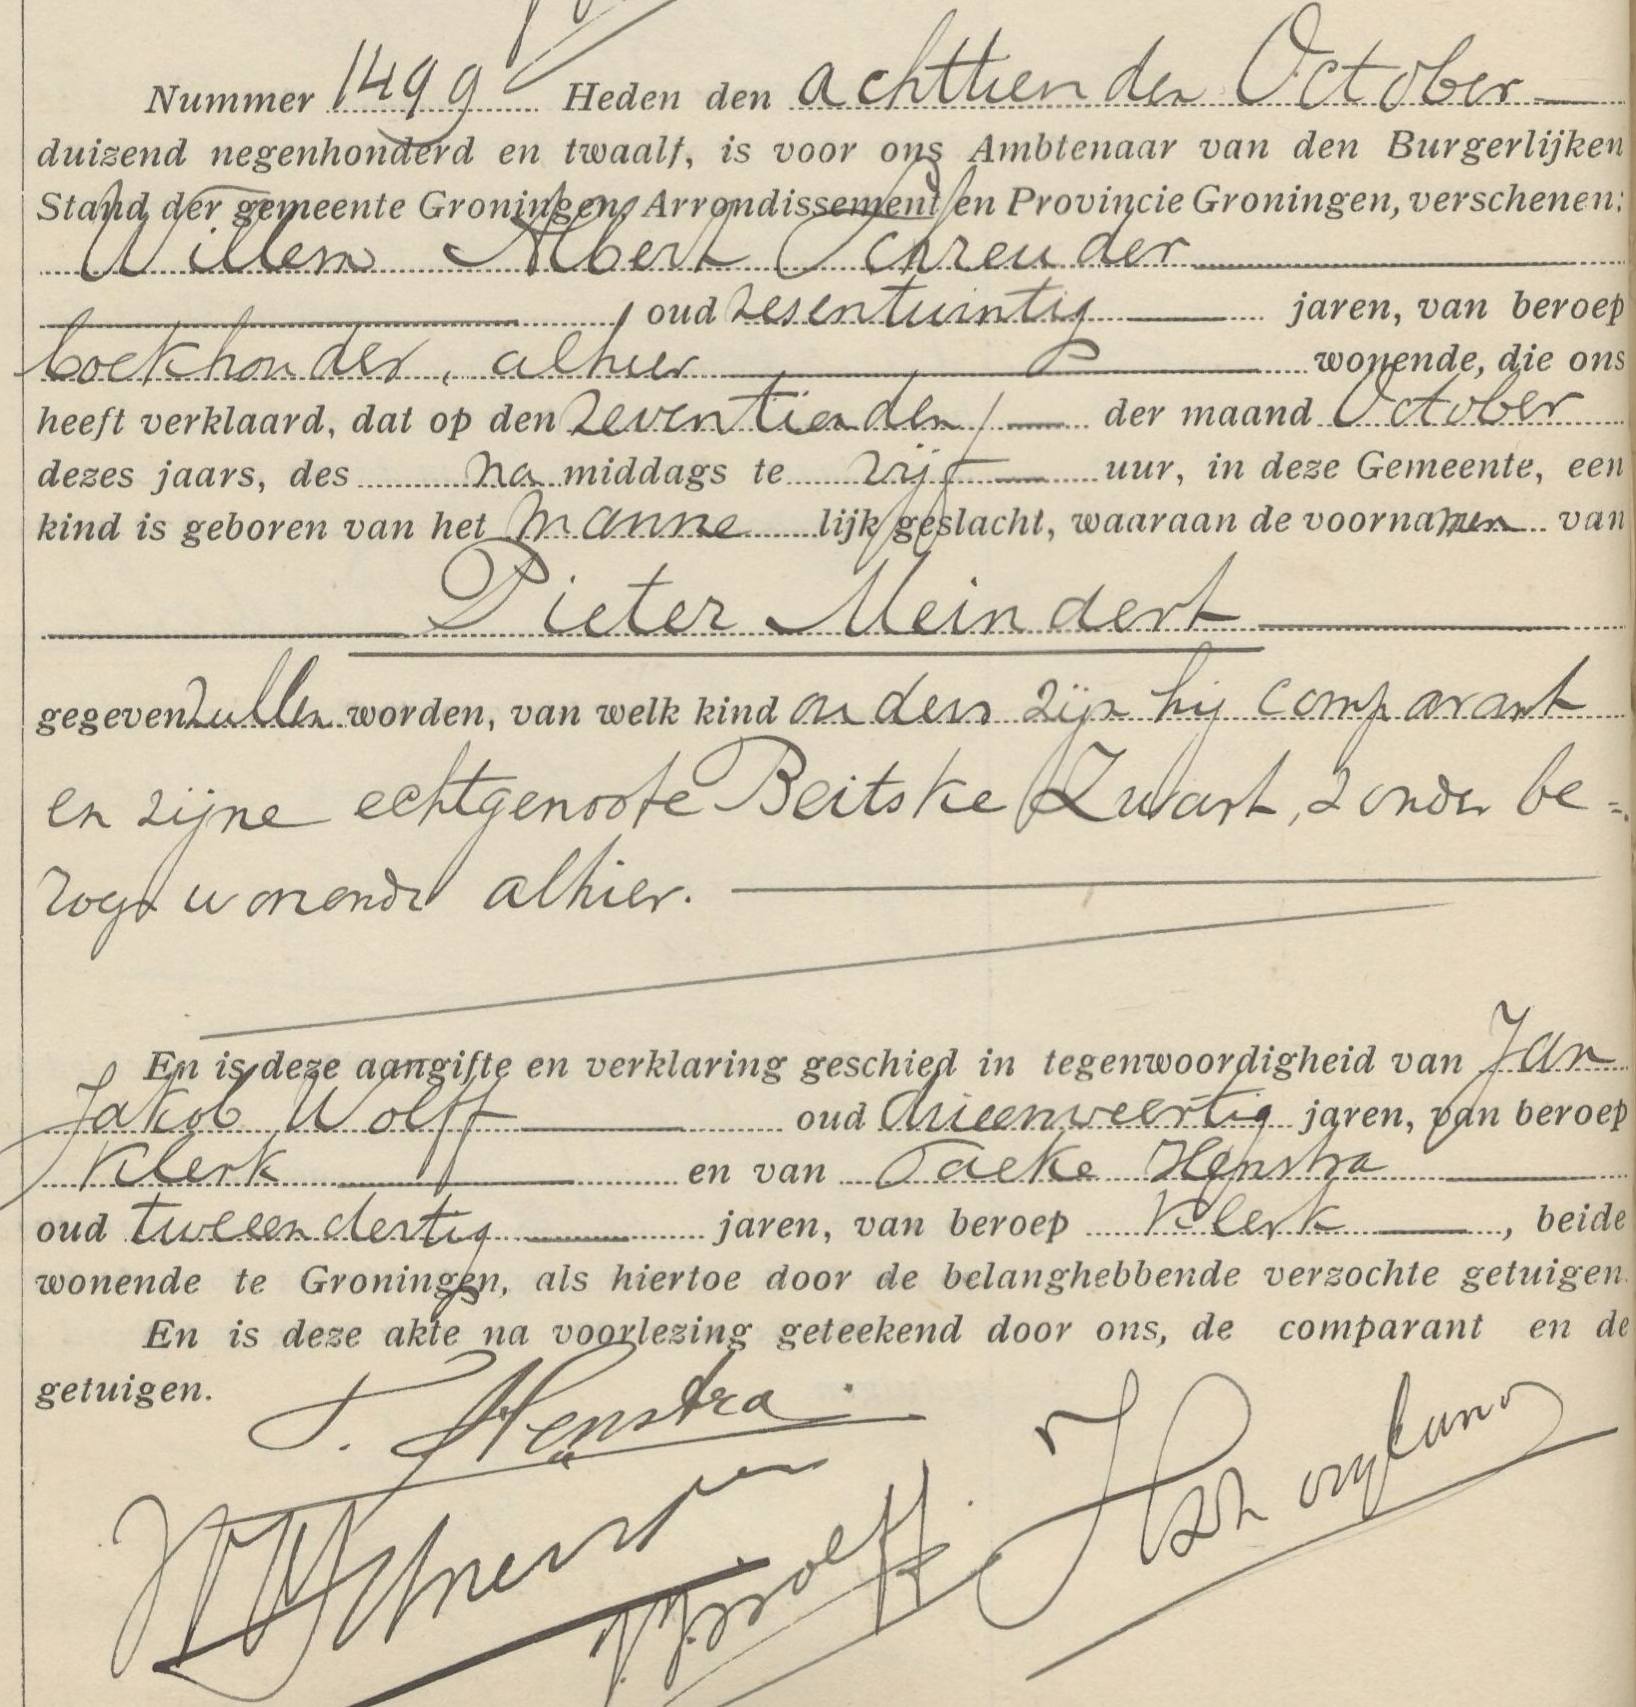 Nummer 1499 Heden den achttienden October
duizend negenhonderd en twaalf, is voor ons Ambtenaar van den Burgerlijken
Stand der gemeente Groningen, Arrondissement en Provincie Groningen, verschenen:
Willem Albert Schreuder
, oud zesentwintig jaren, van beroep
boekhouder, alhier wonende, die ons
heeft verklaard, dat op den zeventienden der maand October
dezes jaars, des na middags te vijf uur, in deze Gemeente, een
kind is geboren van het manne lijk geslacht, waaraan de voornamen van
Pieter Meindert
gegeven zullen worden, van welk kind ouders zijn hij comparant
en zijne echtgenoote Beitske Zwart, zonder be=
roep wonende alhier.
En is deze aangifte en verklaring geschied in tegenwoordigheid van Jan
Jakob Wolff oud drieenveertig jaren, van beroep
Klerk en van Taeke Henstra
oud tweeendertig jaren, van beroep Klerk, beide
wonende te Groningen, als hiertoe door de belanghebbende verzochte getuigen.
En is deze akte na voorlezing geteekend door ons, de comparant en de
getuigen.
T. Henstra.
WASchreuder
J.J. Wolff.